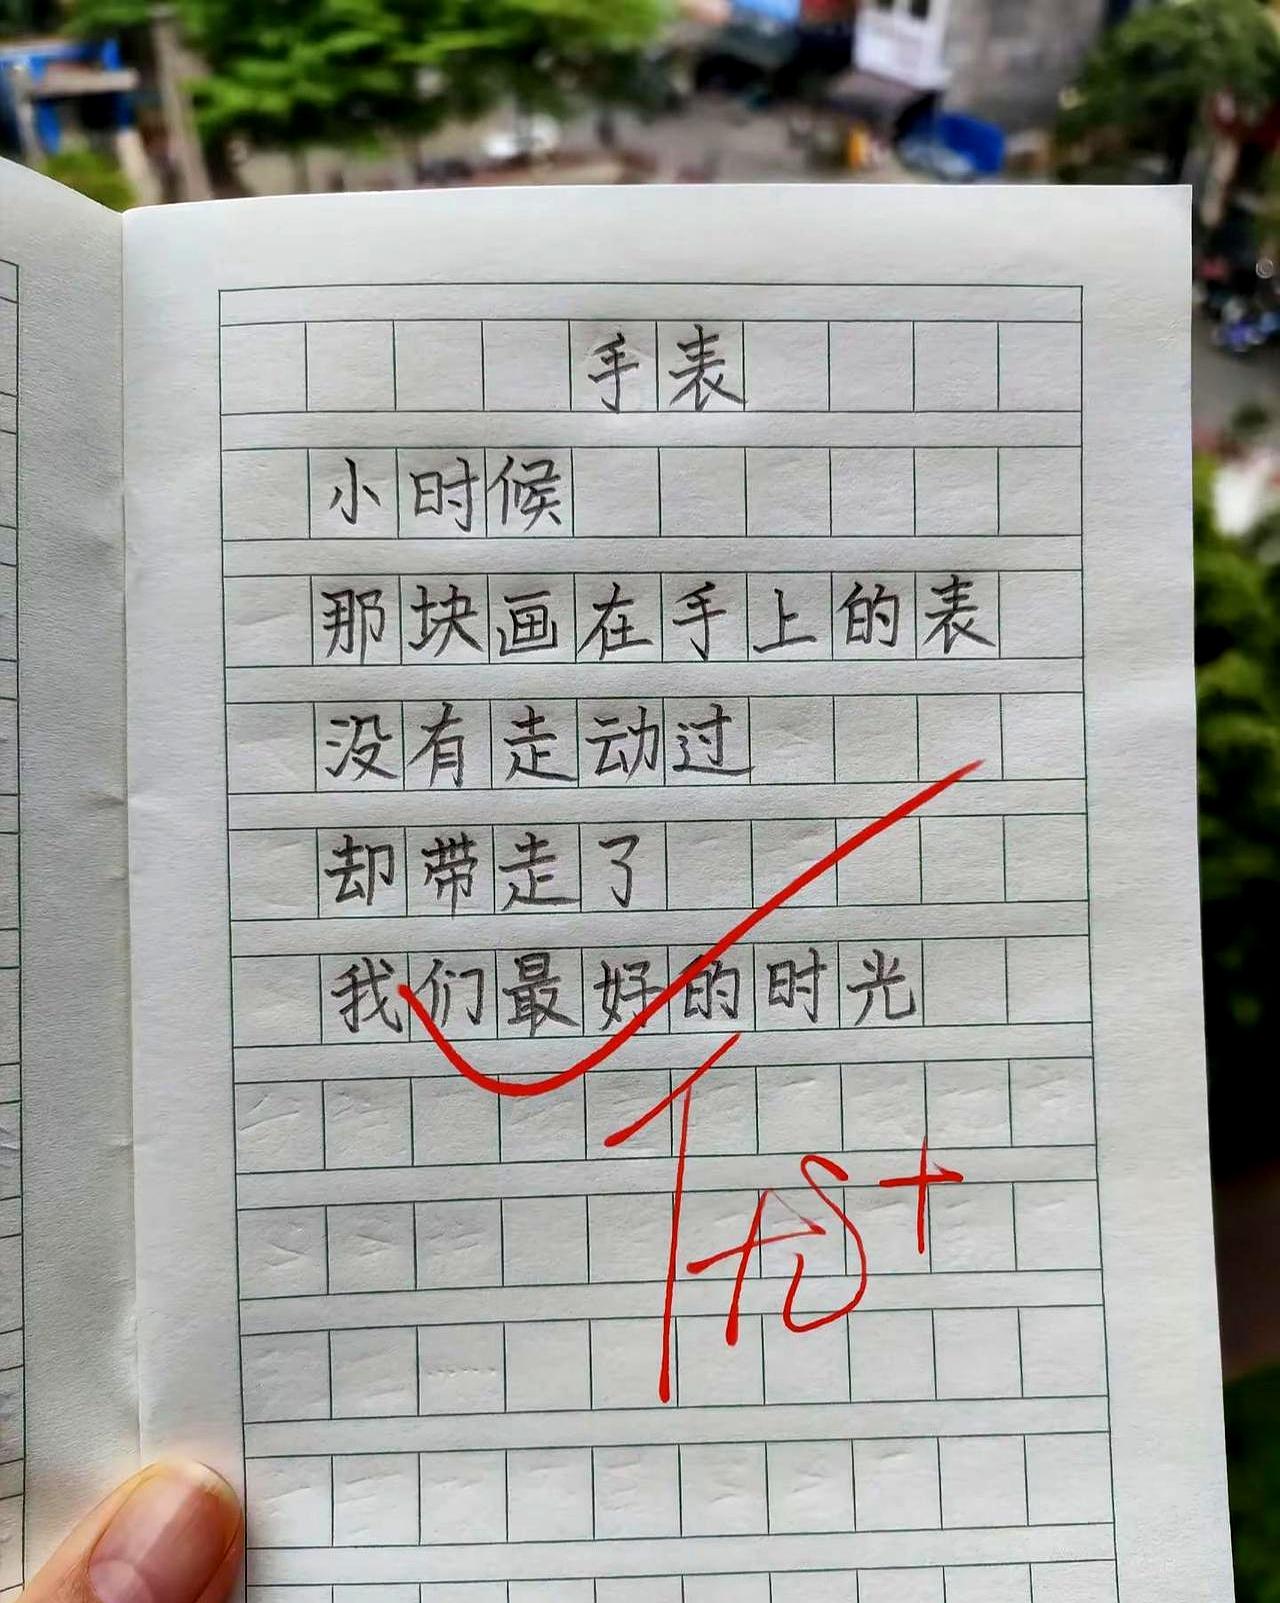 手表
小时候
那块画在手上的表
没有走动过
却带走了
我们最好的时光